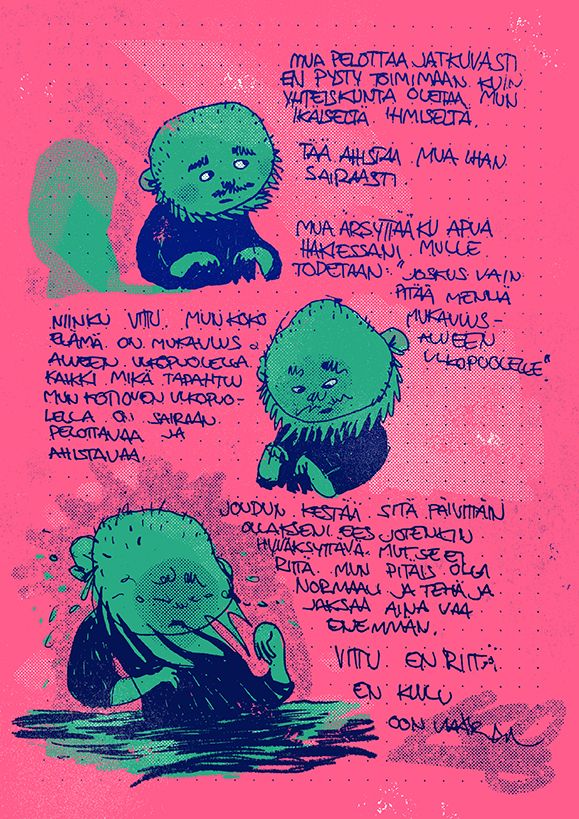 MUA PELOTTAA JATKUVASTI
EN PYSTY TOIMIMAAN KUIN
YHTEISKUNTA OLETTAA MUN
IKÄISELTÄ IHMISELTÄ.
TÄÄ AHISTAA MUA IHAN
SAIRAASTI.
MUA ÄRSYTTÄÄ KU APUA
HAKIESSANI MULLE
TODETAAN "JOSKUS VAIN
PITÄÄ MENNÄ
MUKAVUUS-
ALUEEN
ULKOPUOLELLE."
NIINKU VITTU MUN KOKO
ELÄMÄ ON MUKAVUUS-
ALUEEN ULKOPUOLELLA.
KAIKKI MIKÄ TAPAHTUU
MUN KOTIOVEN ULKOPUO-
LELLA ON SAIRAAN
PELOTTAVAA JA
AHISTAVAA.
JOUDUN KESTÄÄ SITÄ PÄIVITTÄIN
OLLAKSENI EES JOTENKIN
HYVÄKSYTTÄVÄ. MUT SE EI
RIITÄ. MUN PITÄIS OLLA
NORMAALI JA TEHÄ JA
JAKSAA AINA VAA
ENEMMÄN.
VITTU EN RIITÄ
EN KUULU
OON